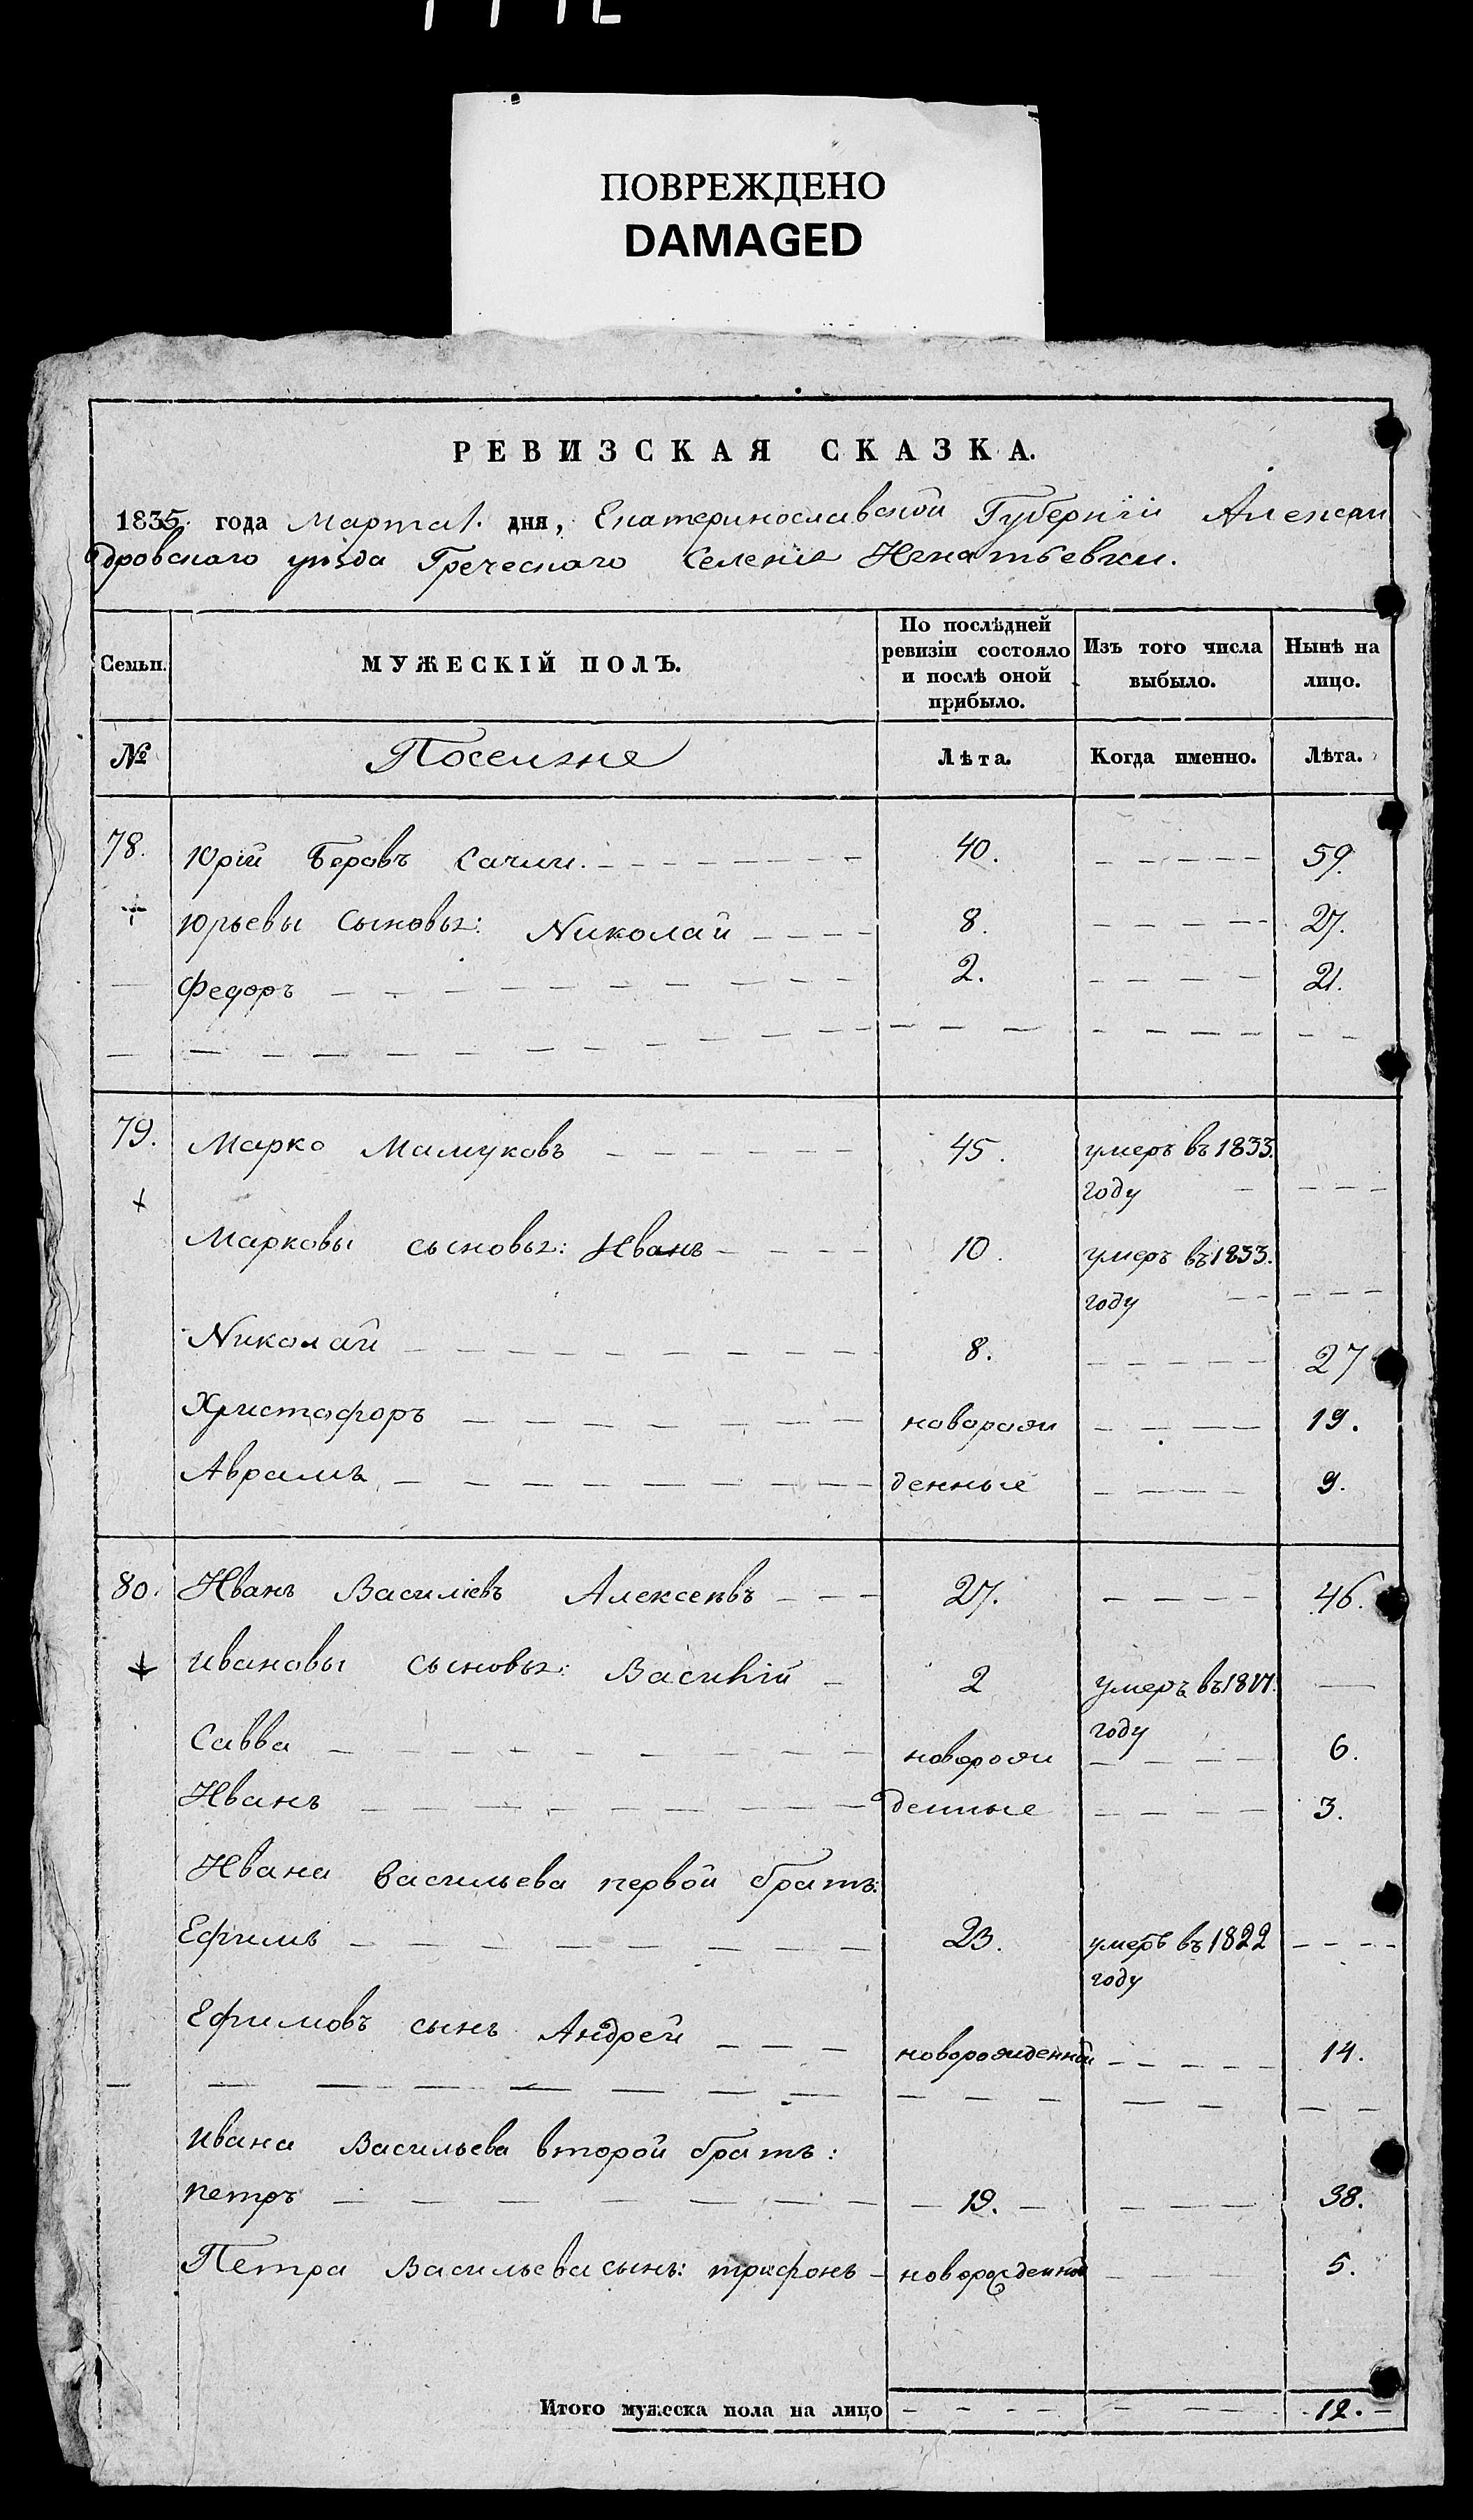 ПОВРЕЖДЕНО
DAMAGED
РЕВИЗСКАЯ СКАЗКА.
1835. года Марта 1. дня, Екатеринославской Губерніи Алексан
дровскаго уѣзда Греческаго Селенія Игнатьевки.
Семьи. МУЖЕСКІЙ ПОЛЪ. По послѣдней ревизіи состояло и послѣ оной прибыло. Изъ того числа выбыло. Нынѣ на лицо.
№ Поселяне Лѣта. Когда именно. Лѣта.
78. Юрій Беровъ Сачли. 40. 59.
Юрьевы сыновья: Николай 8. 27.
Федоръ 2. 21.
79. Марко Мамуковъ 45. умеръ въ 1833.
году
Марковы сыновья: Иванъ 10. умеръ въ 1833.
году
Николай 8. 27
Христофоръ новорож 19.
Аврамъ денные 9.
80. Иванъ Василіевъ Алексеевъ 27. 46.
Ивановы сыновья: Василій 2 умеръ въ
году
Савва новорож 6.
Иванъ денные 3.
Ивана Васильева первой братъ:
Ефимъ 23. умеръ въ 1822
году
Ефимовъ сынъ Андрей новорожденной 14.
Ивана Васильева второй братъ:
Петръ 19. 38.
Петра Васильева сынъ: Трифонъ новорожденной 5.
Итого мужеска пола на лицо 12.